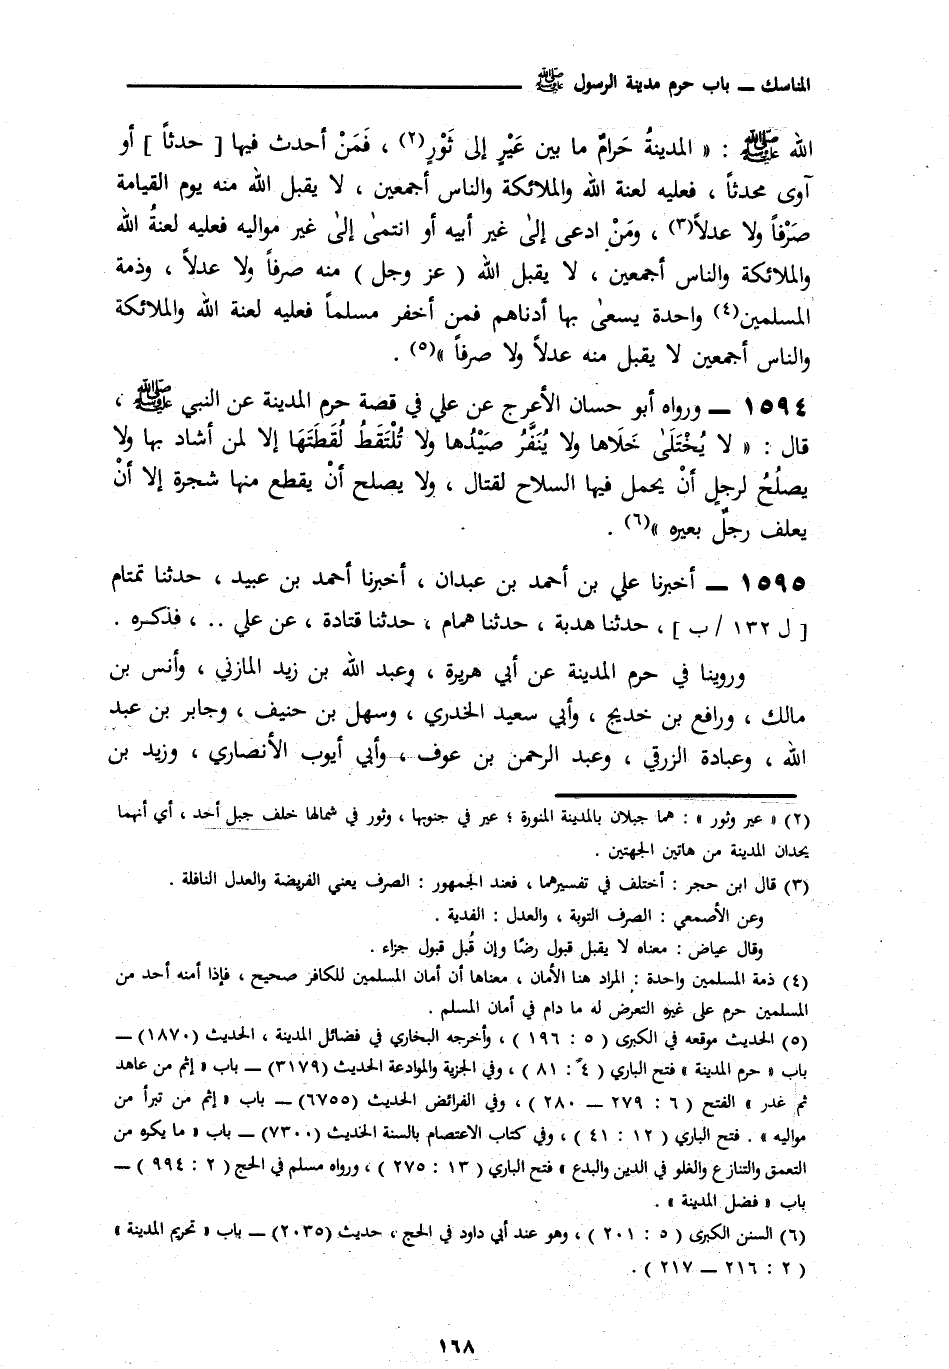 المناسك ــ باب حرم مدينة الرسول ﷺ
الله ﷺ : « المدينةُ حَرامٌ ما بين عَيْرٍ إلى ثَوْرٍ(٢) ، فَمَنْ أحدث فيها [ حدثاً ] أو
آوى محدثاً ، فعليه لعنة الله والملائكة والناس أجمعين ، لا يقبل الله منه يوم القيامة
صَرْفاً ولا عدلاً(٣) ، ومَنْ ادعى إلىٰ غير أبيه أو انتمىٰ إلىٰ غير مواليه فعليه لعنةُ الله
والملائكة والناس أجمعين ، لا يقبل الله ( عز وجل ) منه صرفاً ولا عدلاً ، وذمة
المسلمين(٤) واحدة يسعىٰ بها أدناهم فمن أخفر مسلماً فعليه لعنة الله والملائكة
والناس أجمعين لا يقبل منه عدلاً ولا صرفاً »(٥) .
١٥٩٤ ــ ورواه أبو حسان الأعرج عن علي في قصة حرم المدينة عن النبي ﷺ ،
قال : « لا يُخْتَلَىٰ خَلَاها ولا يُنَفَّرُ صَيْدُها ولا تُلْتَقَطُ لُقَطَتَهَا إلا لمن أشاد بها ولا
يصلُحُ لرجلٍ أنْ يحمل فيها السلاح لقتال ، ولا يصلح أنْ يقطع منها شجرة إلا أنْ
يعلف رجلٌ بعيره »(٦) .
١٥٩٥ ــ أخبرنا علي بن أحمد بن عبدان ، أخبرنا أحمد بن عبيد ، حدثنا تمتام
[ ل ١٣٢ / ب ] ، حدثنا هدبة ، حدثنا همام ، حدثنا قتادة ، عن علي .. ، فذكره .
وروينا في حرم المدينة عن أبي هريرة ، وعبد الله بن زيد المازني ، وأنس بن
مالك ، ورافع بن خديج ، وأبي سعيد الخدري ، وسهل بن حنيف ، وجابر بن عبد
الله ، وعبادة الزرقي ، وعبد الرحمن بن عوف ، وأبي أيوب الأنصاري ، وزيد بن
(٢) « عير وثور » : هما جبلان بالمدينة المنورة ؛ عير في جنوبها ، وثور في شمالها خلف جبل أحد ، أي أنهما
يحدان المدينة من هاتين الجهتين .
(٣) قال ابن حجر : أختلف في تفسيرهما ، فعند الجمهور : الصرف يعني الفريضة والعدل النافلة .
وعن الأصمعي : الصرف التوبة ، والعدل : الفدية .
وقال عياض : معناه لا يقبل قبول رضًا وإن قُبل قبول جزاء .
(٤) ذمة المسلمين واحدة : المراد هنا الأمان ، معناها أن أمان المسلمين للكافر صحيح ، فإذا أمنه أحد من
المسلمين حرم على غيره التعرض له ما دام في أمان المسلم .
(٥) الحديث موقعه في الكبرى ( ٥ : ١٩٦ ) ، وأخرجه البخاري في فضائل المدينة ، الحديث (١٨٧٠) ــ
باب « حرم المدينة » فتح الباري ( ٤ : ٨١ ) ، وفي الجزية والموادعة الحديث (٣١٧٩) ــ باب « إثم من عاهد
ثم غدر » الفتح ( ٦ : ٢٧٩ ــ ٢٨٠ ) ، وفي الفرائض الحديث (٦٧٥٥) ــ باب « إثم من تبرأ من
مواليه » . فتح الباري ( ١٢ : ٤١ ) ، وفي كتاب الاعتصام بالسنة الحديث (٧٣٠٠) ــ باب « ما يكره من
التعمق والتنازع والغلو في الدين والبدع » فتح الباري ( ١٣ : ٢٧٥ ) ، ورواه مسلم في الحج ( ٢ : ٩٩٤ ) ــ
باب « فضل المدينة » .
(٦) السنن الكبرى ( ٥ : ٢٠١ ) ، وهو عند أبي داود في الحج ، حديث (٢٠٣٥) ــ باب « تحريم المدينة »
( ٢ : ٢١٦ ــ ٢١٧ ) .
١٦٨